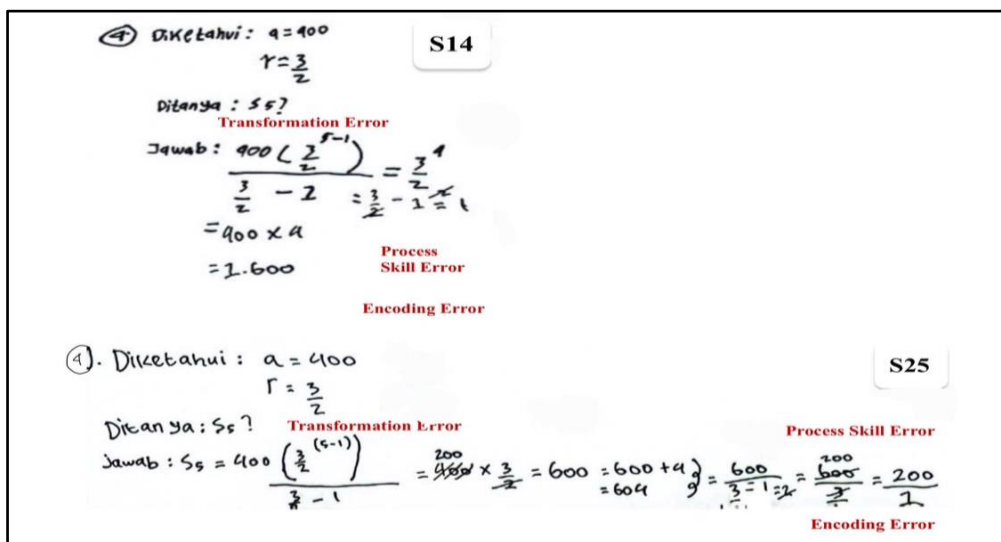 ④ Diketahui : a = 400
S14
r = 3/2
Ditanya : S5?
Transformation Error
Jawab : 400 ( 3/2 ^5-1 ) / 3/2 - 1 = 3/2 ^4
= 3/2 - 1 =
= 400 x 4
= 1.600
Process
Skill Error
Encoding Error
④. Diketahui : a = 400
S25
r = 3/2
Ditanya : S5?
Transformation Error
Process Skill Error
Jawab : S5 = 400 ( 3/2 ^(5-1) ) / 3/2 - 1 = 200 x 3/2 = 600 = 600 + 4 = 600 / 3 - 1 = 2 = 200 600 / 3 = 200 / 1
= 604
Encoding Error